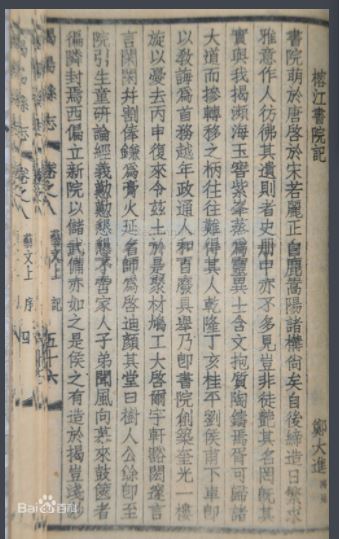 榕江書院記 鄭大進
書院萌於唐啓於宋若麗正白鹿嵩陽諸構尙矣自後締造日繁求
雅意作人彷彿其遺則者史册中亦不多見豈非徒艷其名罔旣其
實與我揭瀕海玉窖紫峯蒸爲靈異士含文抱質陶鑄焉胥可歸諸
大道而摻轉移之柄往往難得其人乾隆丁亥桂平劉侯甫下車卽
以敎誨爲首務越年政通人和百廢具舉乃卽書院創築奎光一樓
旋以憂去丙申復來令茲土於是聚材鳩工大啓爾宇軒豁閎邃言
言閑閑幷割俸鎌爲膏火延名師爲啓迪顏其堂曰樹人公餘卽至
院引生童硏論經義勤勤懇懇不啻家人子弟聞風向慕來鼓篋者
徧隣封焉西偏立新院以儲武備亦如之是侯之有造於揭豈淺
揭陽縣志 卷之八 藝文上 記 五十六
陽縣志 卷之八 藝文上 序 四
Bai百科